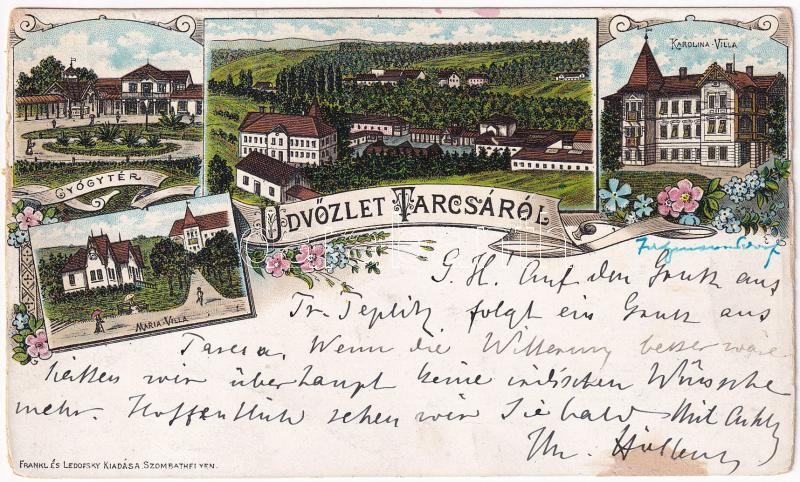 KAROLINA-VILLA
GYÓGYTÉR
ÜDVÖZLET TARCSÁRÓL
MARIA-VILLA
G. H.! Auf den Gruß aus
Tr. Teplitz, folgt ein Gruß aus
Tarcsa. Wenn die Witterung besser wäre
hätten wir überhaupt keine irdischen Wünsche
mehr. Hoffentlich sehen wir Sie bald. Mit
Ihr
FRANKL ÉS LEDOFSKY KIADÁSA, SZOMBATHELYEN.